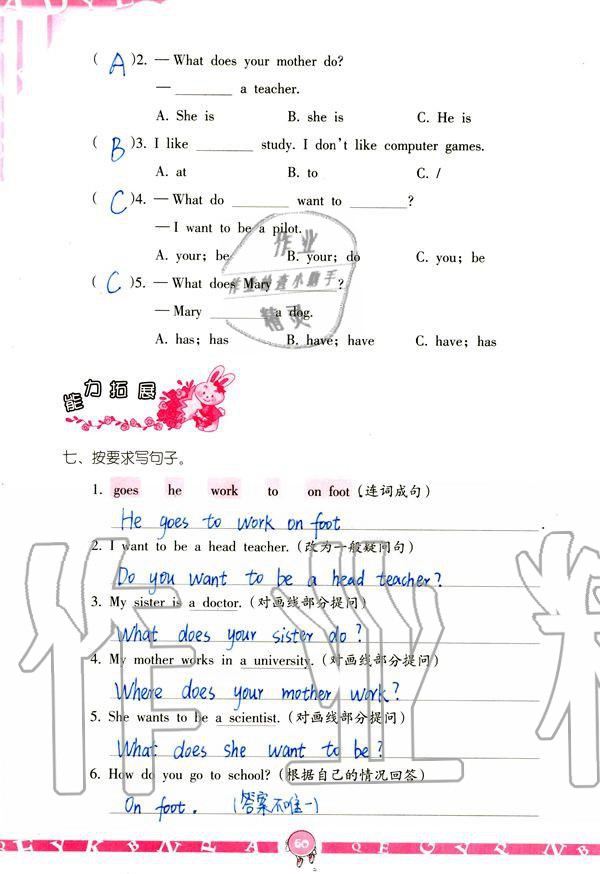 ( A )2. — What does your mother do?
— ________ a teacher.
A. She is B. she is C. He is
( B )3. I like ________ study. I don't like computer games.
A. at B. to C. /
( C )4. — What do ________ want to ________?
— I want to be a pilot.
A. your; be B. your; do C. you; be
( C )5. — What does Mary ________?
— Mary ________ a dog.
A. has; has B. have; have C. have; has
能力拓展
七、按要求写句子。
1. goes he work to on foot (连词成句)
He goes to work on foot .
2. I want to be a head teacher. (改为一般疑问句)
Do you want to be a head teacher?
3. My sister is a doctor. (对画线部分提问)
What does your sister do?
4. My mother works in a university. (对画线部分提问)
Where does your mother work?
5. She wants to be a scientist. (对画线部分提问)
What does she want to be?
6. How do you go to school? (根据自己的情况回答)
On foot. (答案不唯一)
60
作业精灵
作业
作业的查小助手
精灵